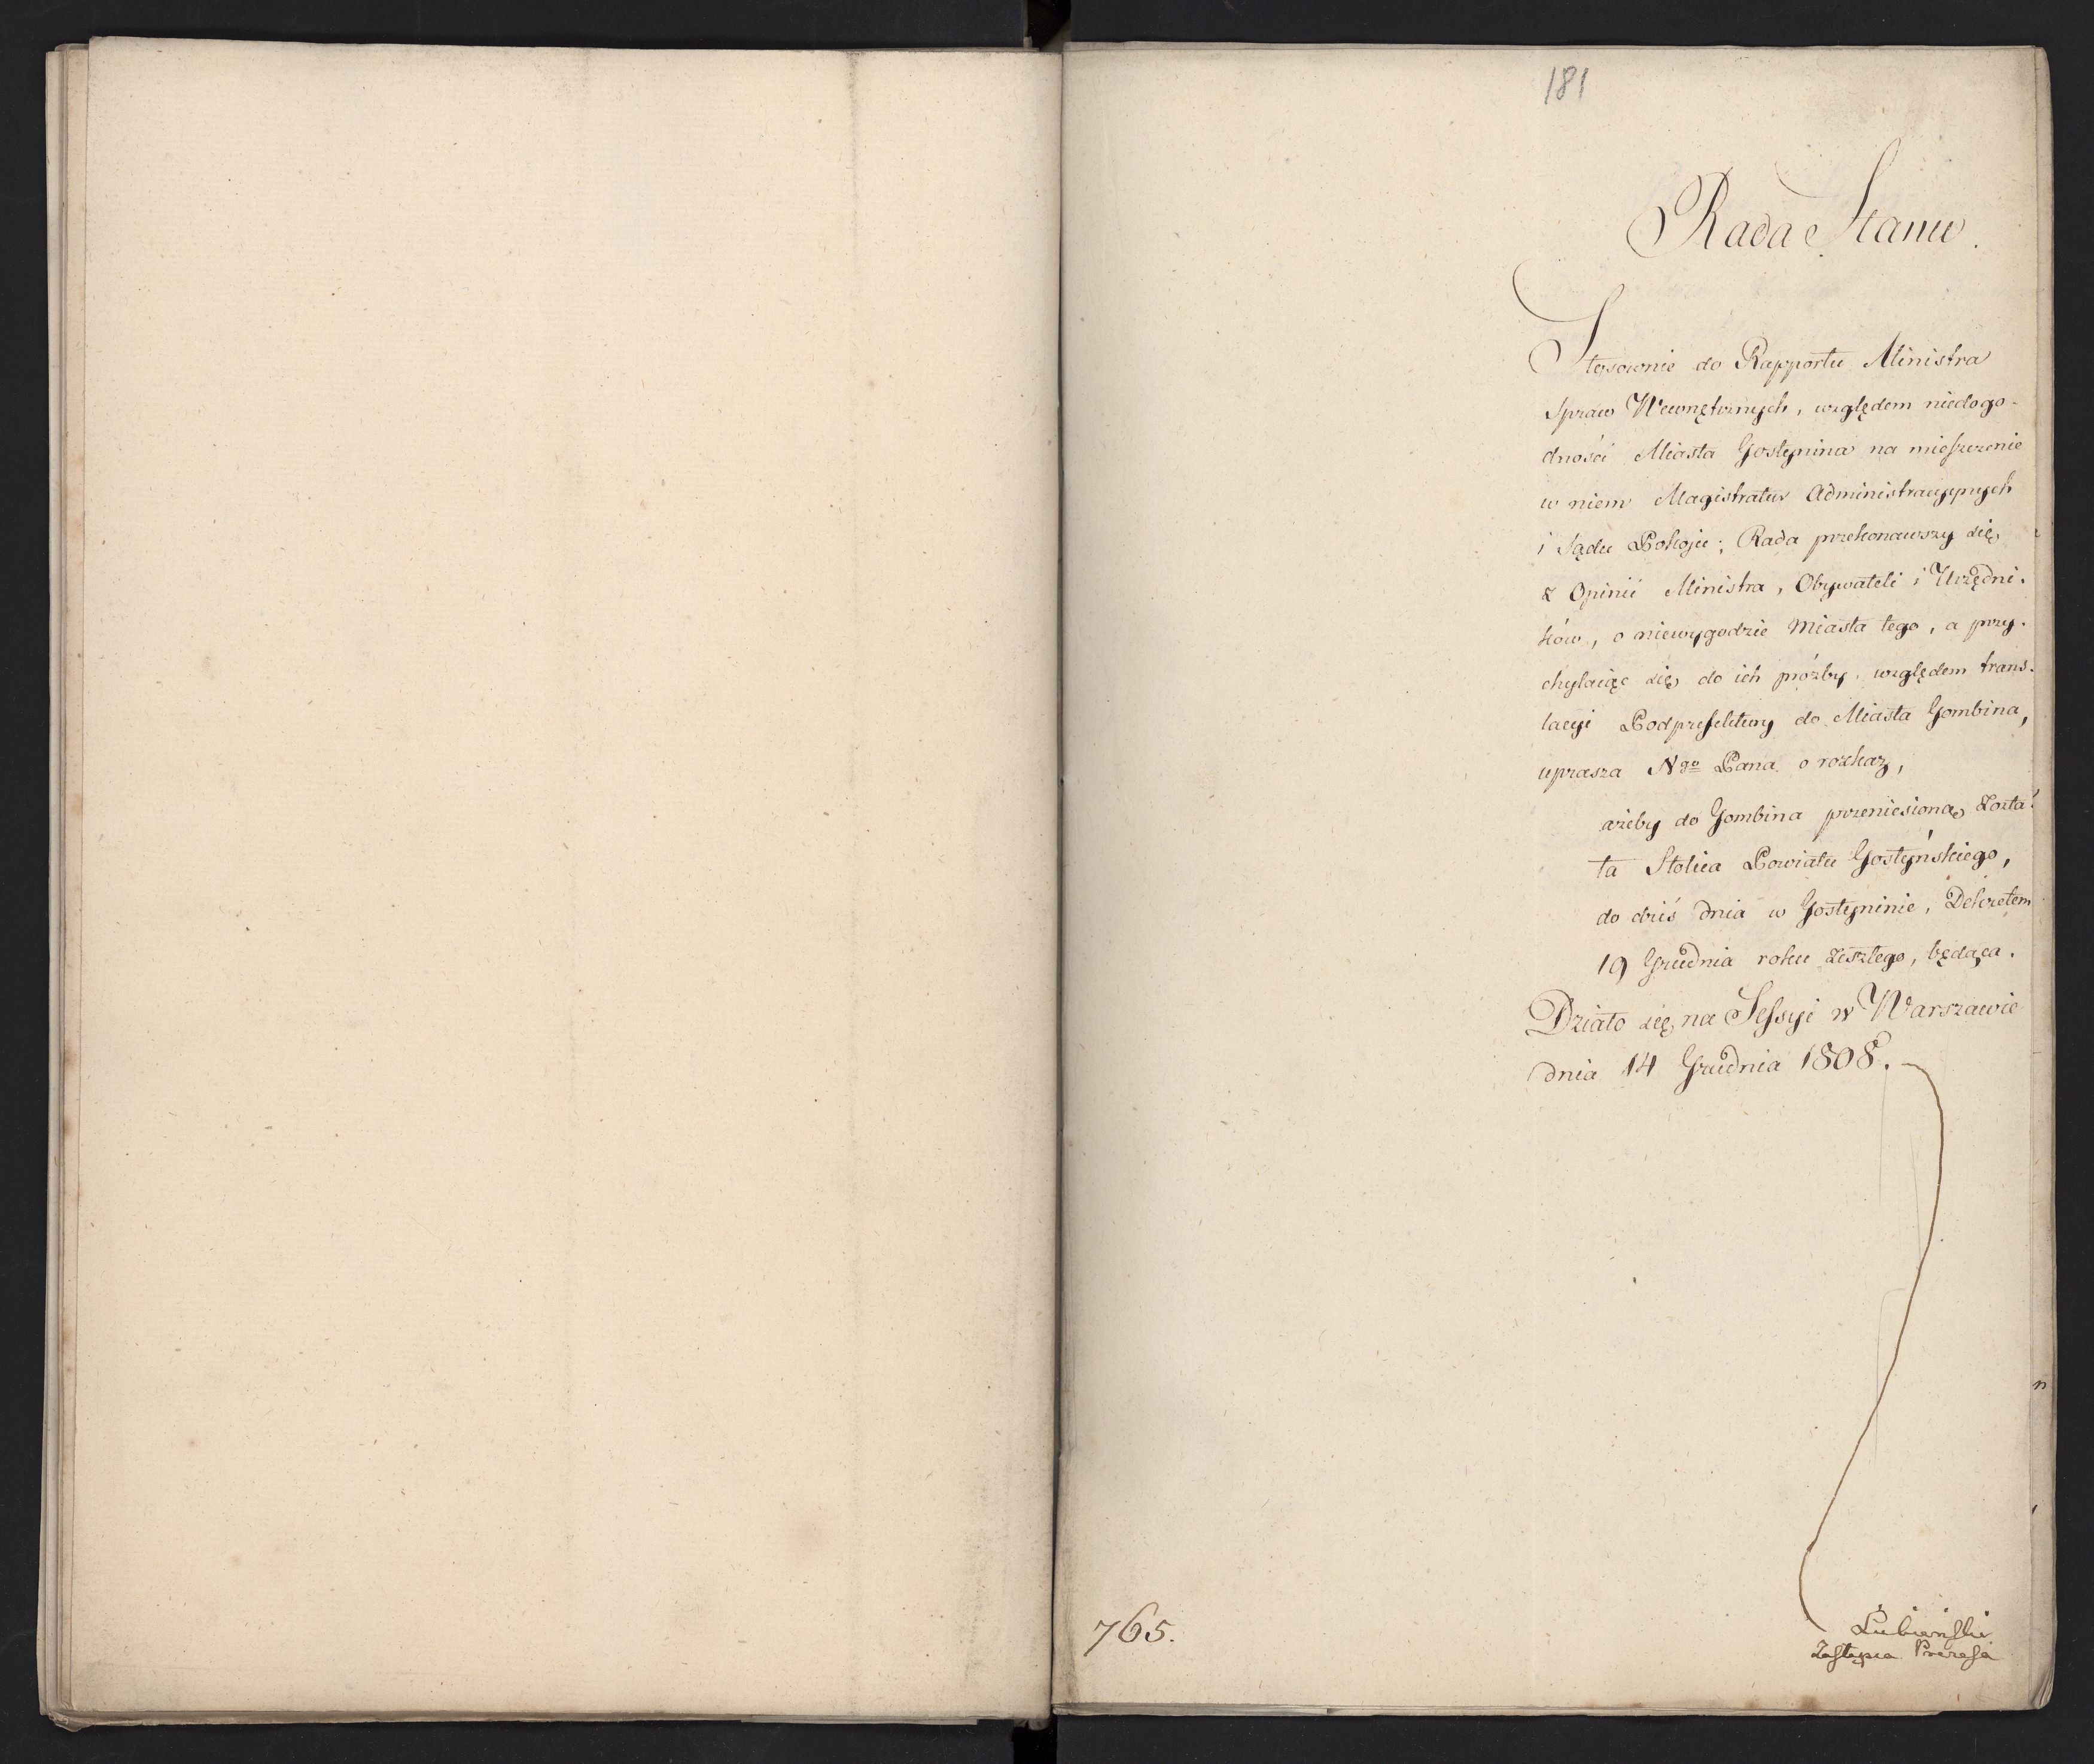 181
Rada Stanu.
Stosownie do Rapportu Ministra
Spraw Wewnętrznych, względem niedogo-
dności Miasta Gostynina na mieszczenie
w niem Magistratur Administracyjnych
i Sądu Pokoju; Rada przekonawszy się
z Opinii Ministra, Obywateli i Urzędni-
ków, o niewygodzie Miasta tego, a przy-
chylaiąc się do ich prózby względem trans-
lacyi Podprefektury do Miasta Gombina,
uprasza Ngo Pana o rozkaz,
ażeby do Gombina przeniesioną Zosta-
ła Stolica Powiatu Gostyńskiego,
do dziś dnia w Gostyninie, Dekretem
19 Grudnia roku Zeszłego, będąca.
Działo się na Sessyi w Warszawie
dnia 14 Grudnia 1808.
765.
Łubieński
Zastępca Prezesa